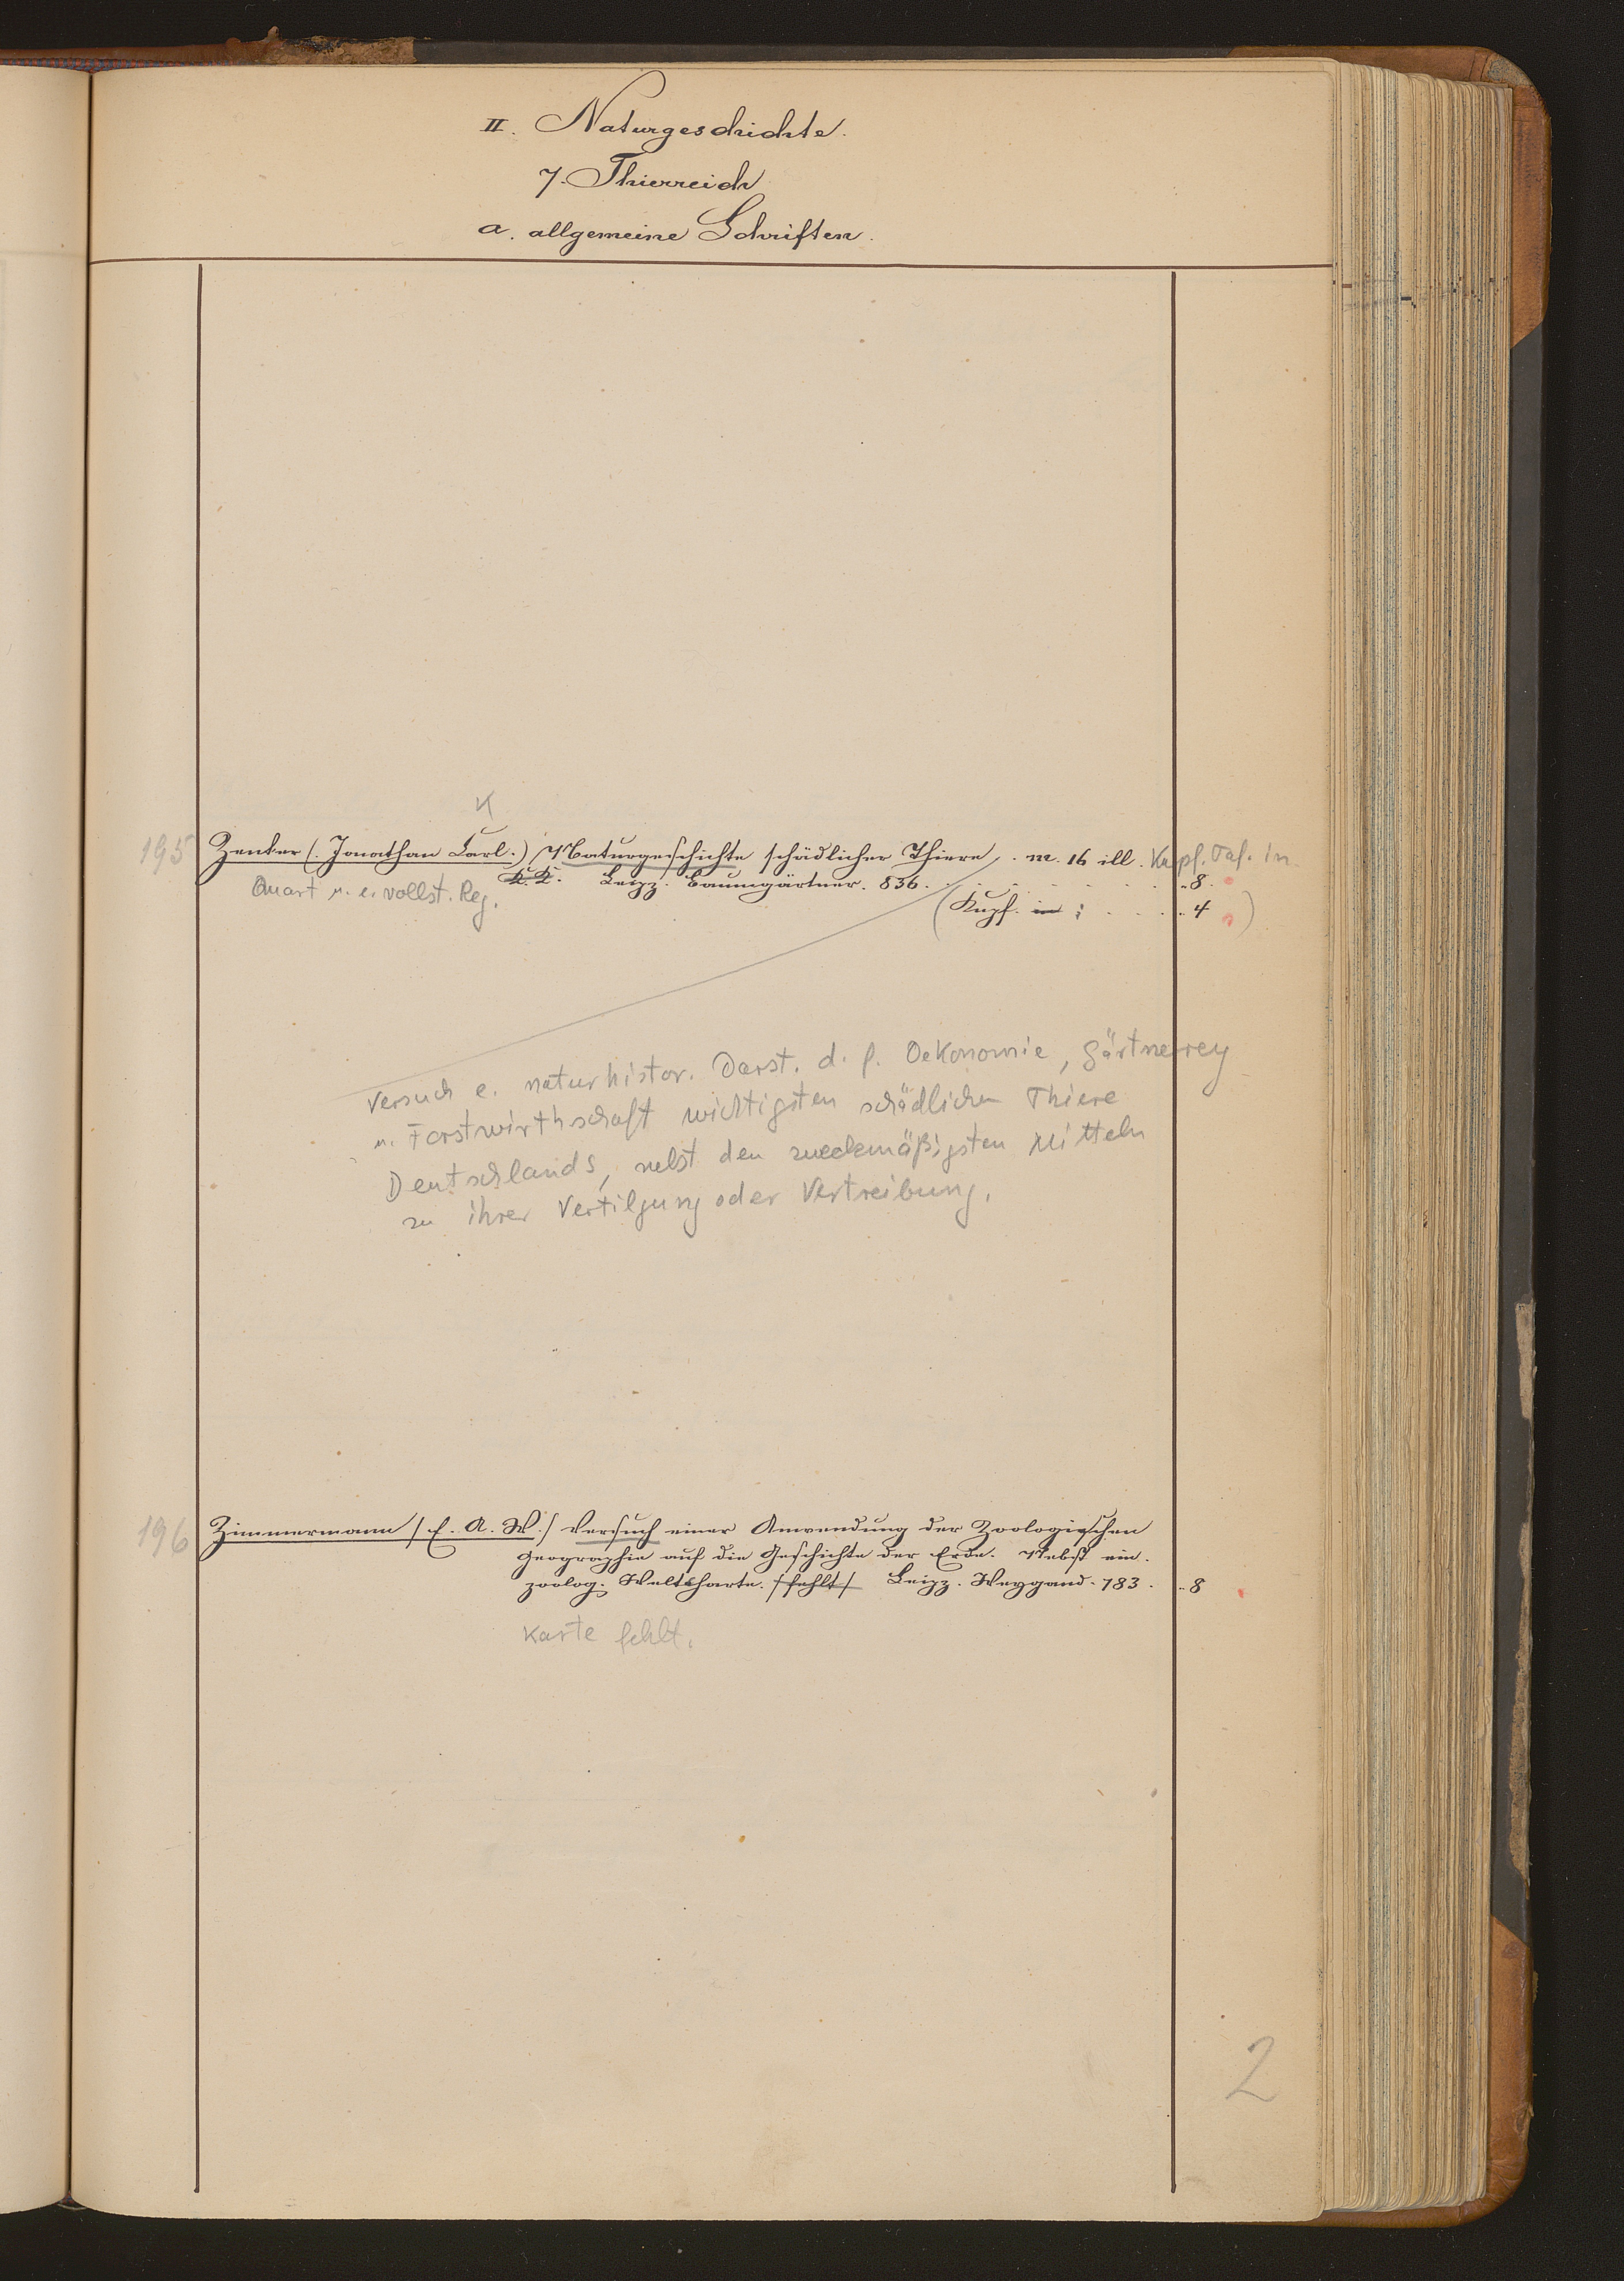 II. Naturgeschichte.
7. Thierreich
a. allgemeine Schriften.
K
195 Zenker (. Jonathan Carl.) Naturgeschichte schädlicher Thiere, . m. 16 ill. Kupf. Taf. in
Quart u. e. vollst. Reg. K. K. Leipz. Baumgärtner. 836. . . . . . . . . 8.
(Kupf. in : . . . . 4 )
Versuch e. naturhistor. Darst. d. f. Oekonomie, Gärtnerrey
u. Forstwirthschaft wichtigsten schädlichen Thiere
Deutschlands, nebst den zweckmäßigsten Mitteln
zu ihrer Vertilgung oder Vertreibung.
196 Zimmermann / E. A. W. / Versuch einer Anwendung der Zoologischen
Geographie auf die Geschichte der Erde. Nebst ein.
zoolog. Weltcharte. / fehlt / Leipz. Weygand. 783. .. 8
Karte fehlt.
2